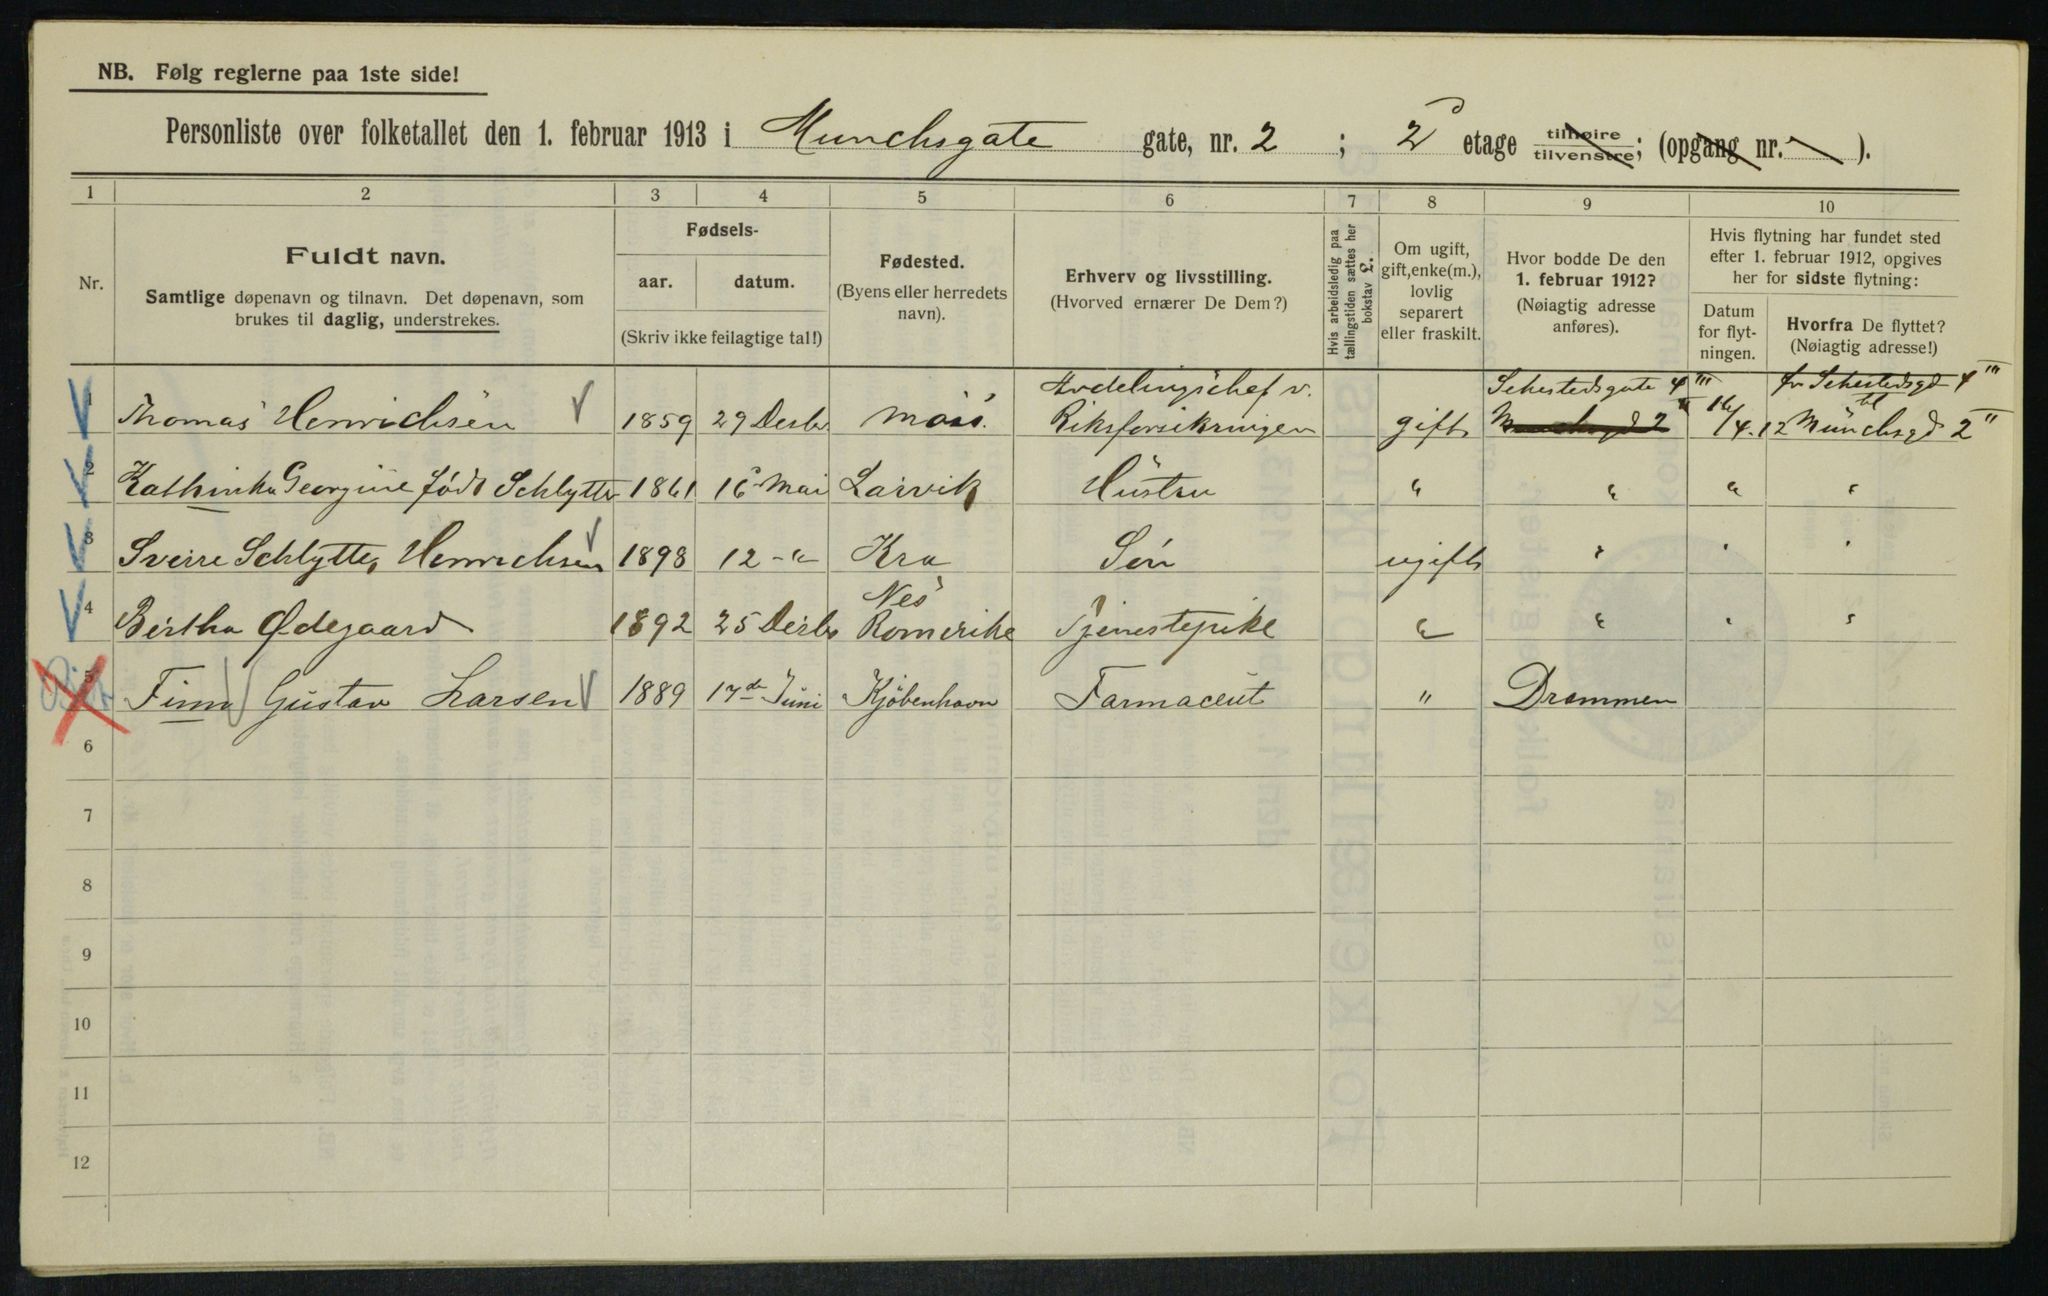 NB. Følg reglerne paa 1ste side!
Personliste over folketallet den 1. februar 1913 i Munchsgate gate, nr. 2 ; 2 etage tilhøire tilvenstre; (opgang nr. ).
1 2 3 4 5 6 7 8 9 10
Nr.
Fuldt navn.
Samtlige døpenavn og tilnavn. Det døpenavn, som
brukes til daglig, understrekes.
Fødsels-
aar. datum.
(Skriv ikke feilagtige tal!)
Fødested.
(Byens eller herredets
navn).
Erhverv og livsstilling.
(Hvorved ernærer De Dem?)
Hvis arbeidsledig paa
tællingstiden sættes her
bokstav £.
Om ugift,
gift, enke(m.),
lovlig
separert
eller fraskilt.
Hvor bodde De den
1. februar 1912?
(Nøiagtig adresse
anføres).
Hvis flytning har fundet sted
efter 1. februar 1912, opgives
her for sidste flytning:
Datum
for flyt-
ningen.
Hvorfra De flyttet?
(Nøiagtig adresse!)
Avdelingschef v. Sehestedsgate 4 III fr Sehestedsgd 4 III
1 Thomas Henrichsen 1859 29 Desbr Moss. Riksforsikringen gift Munchsgd 2 II 16/4. 12 til Münchsgd 2 II
2 Kathinka Georgine født Schlytter 1861 16 Mai Larvik Hustru " " " "
3 Sverre Schlytter Henrichsen 1898 12 - " Kra Søn ugift " " "
Nes
4 Bertha Ødegaard 1892 25 Desbr Romerike Tjenestepike " " " "
5 Finn Gustav Larsen 1889 17de Juni Kjöbenhavn Farmaceut " Drammen
6
7
8
9
10
11
12